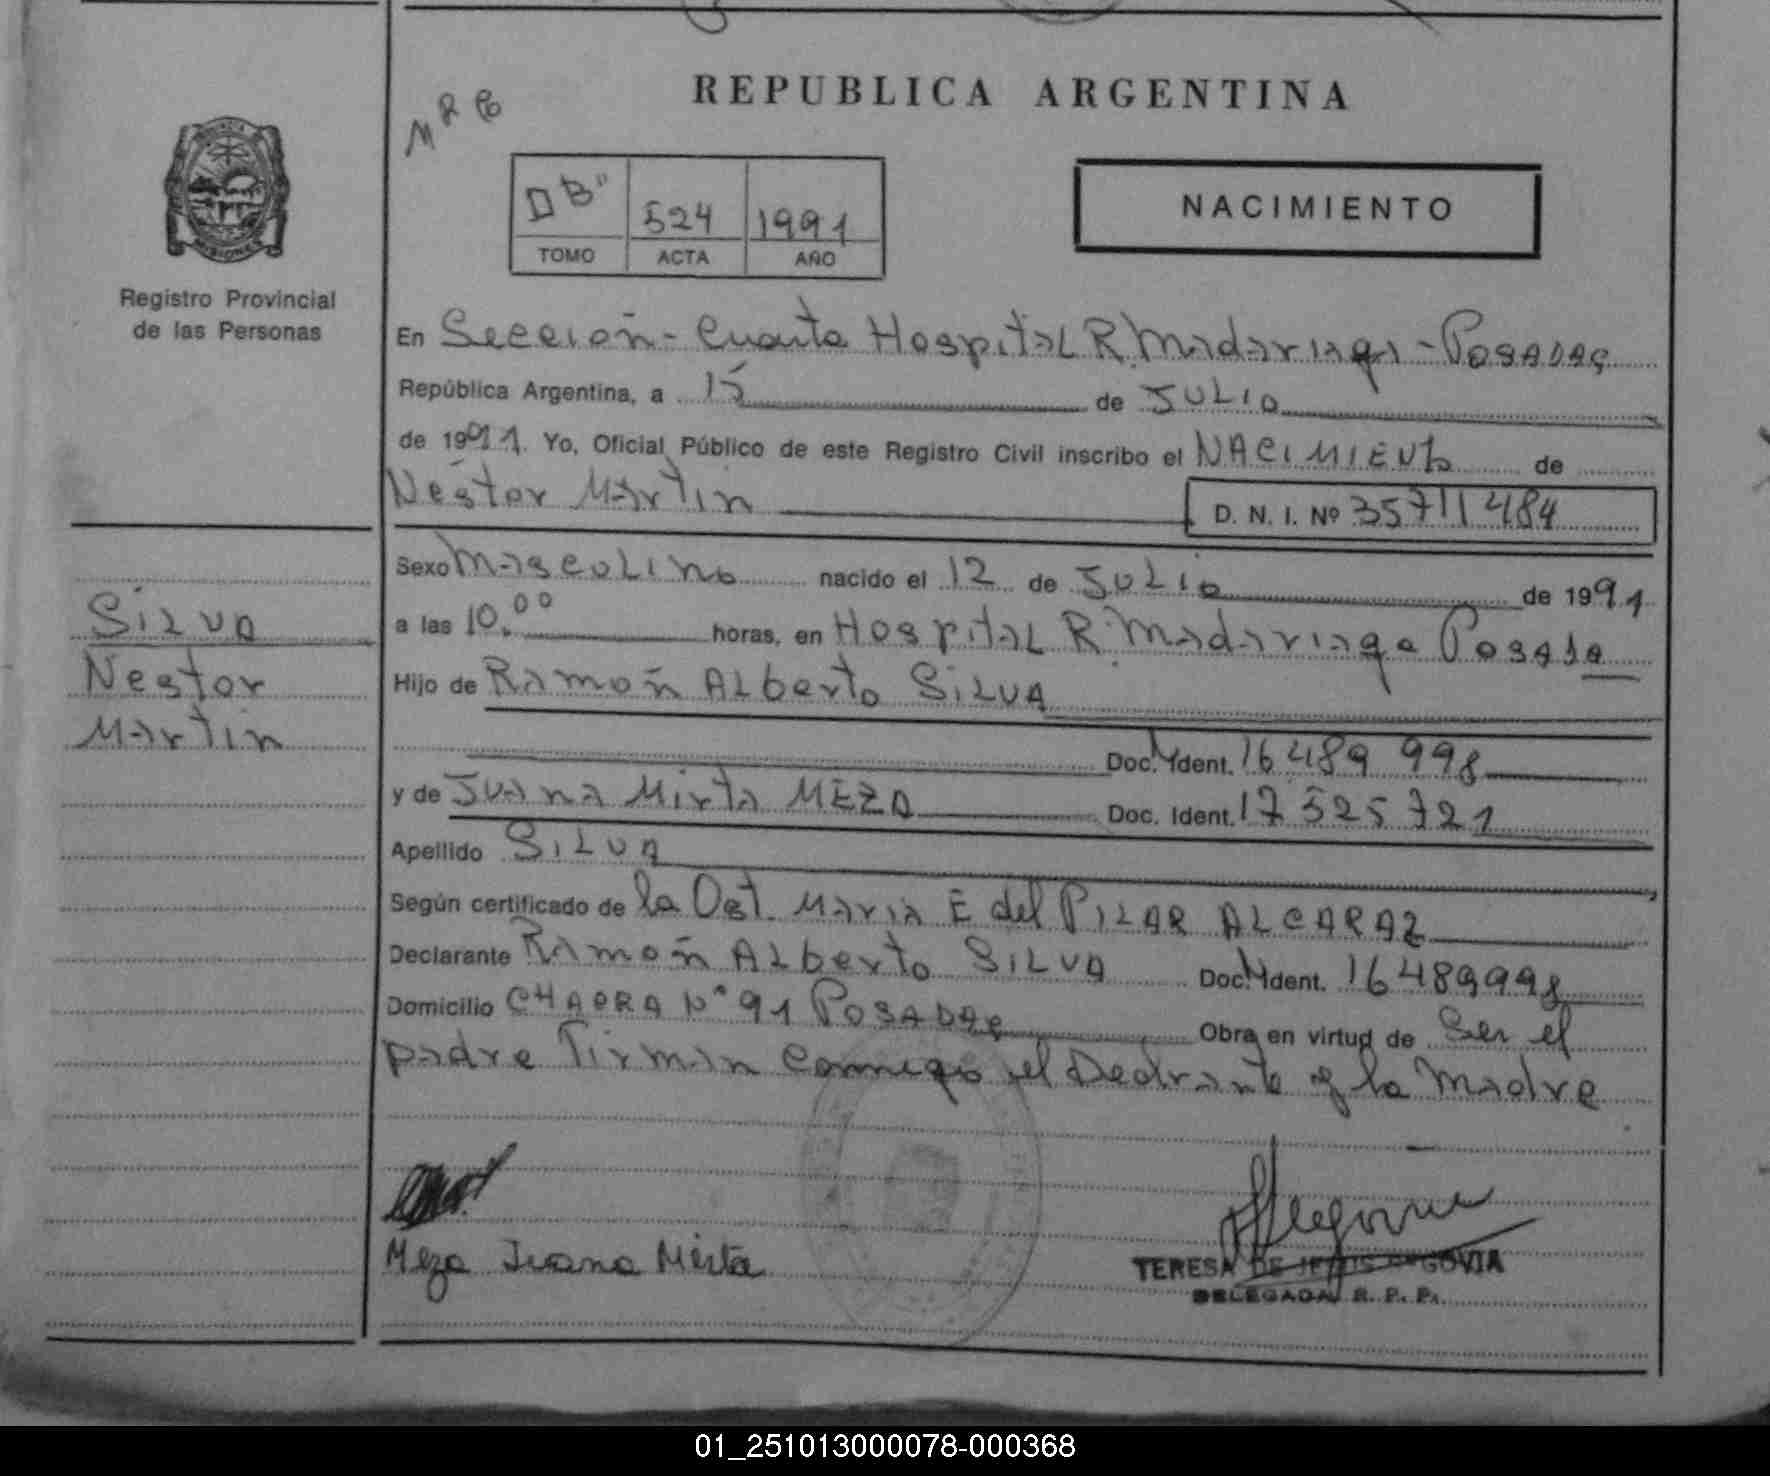 REPUBLICA ARGENTINA
PROVINCIA
MISIONES
Registro Provincial
de las Personas
DB" 524 1991
TOMO ACTA AÑO
NACIMIENTO
En Sección - Cuarta Hospital R. Madariaga - POSADAS
República Argentina, a 15 de JULIO
de 1991. Yo, Oficial Público de este Registro Civil inscribo el NACIMIENTo de
Néstor Martin D. N. I. Nº 35711484
Sexo MascuLino nacido el 12 de JULio de 1991
a las 10.00 horas, en HospitaL R. Madariaga Posada
Hijo de Ramón ALberto SiLVA
Doc. Ident. 16 489 998
y de Juana Mirta MEZA Doc. Ident. 17 525 721
Apellido SiLVA
Según certificado de la Obst. Maria E del PILAR ALCARAZ
Declarante Ramón ALberto SiLVA Doc. Ident. 16489998
Domicilio CHACRA Nº 91 POSADAS Obra en virtud de Ser el
padre Firman Conmigo el Declrante y la Madre
SiLVA
Nestor
Martin
Meza Juana Mirta
TERESA DE JESUS SEGOVIA
DELEGADA R. P. P.
01_251013000078-000368